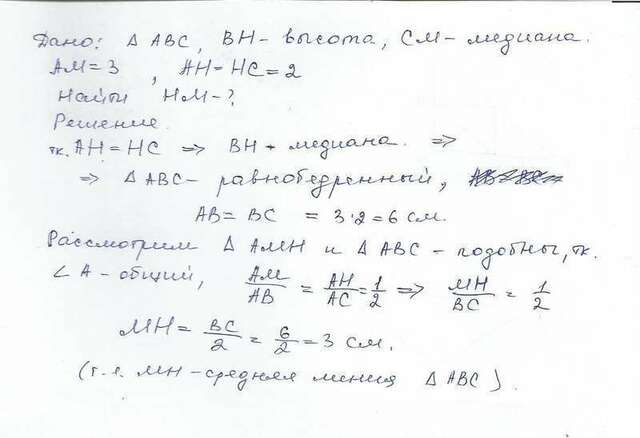 Дано: Δ ABC, BH - высота, CM - медиана.
AM = 3, AH = HC = 2
Найти HM - ?
Решение.
тк. AH = HC => BH - медиана. =>
=> Δ ABC - равнобедренный,
AB = BC = 3·2 = 6 см.
Рассмотрим Δ AMH и Δ ABC - подобны, тк.
∠ A - общий, AM/AB = AH/AC = 1/2 => MH/BC = 1/2
MH = BC/2 = 6/2 = 3 см.
(т.е. MH - средняя линия Δ ABC).